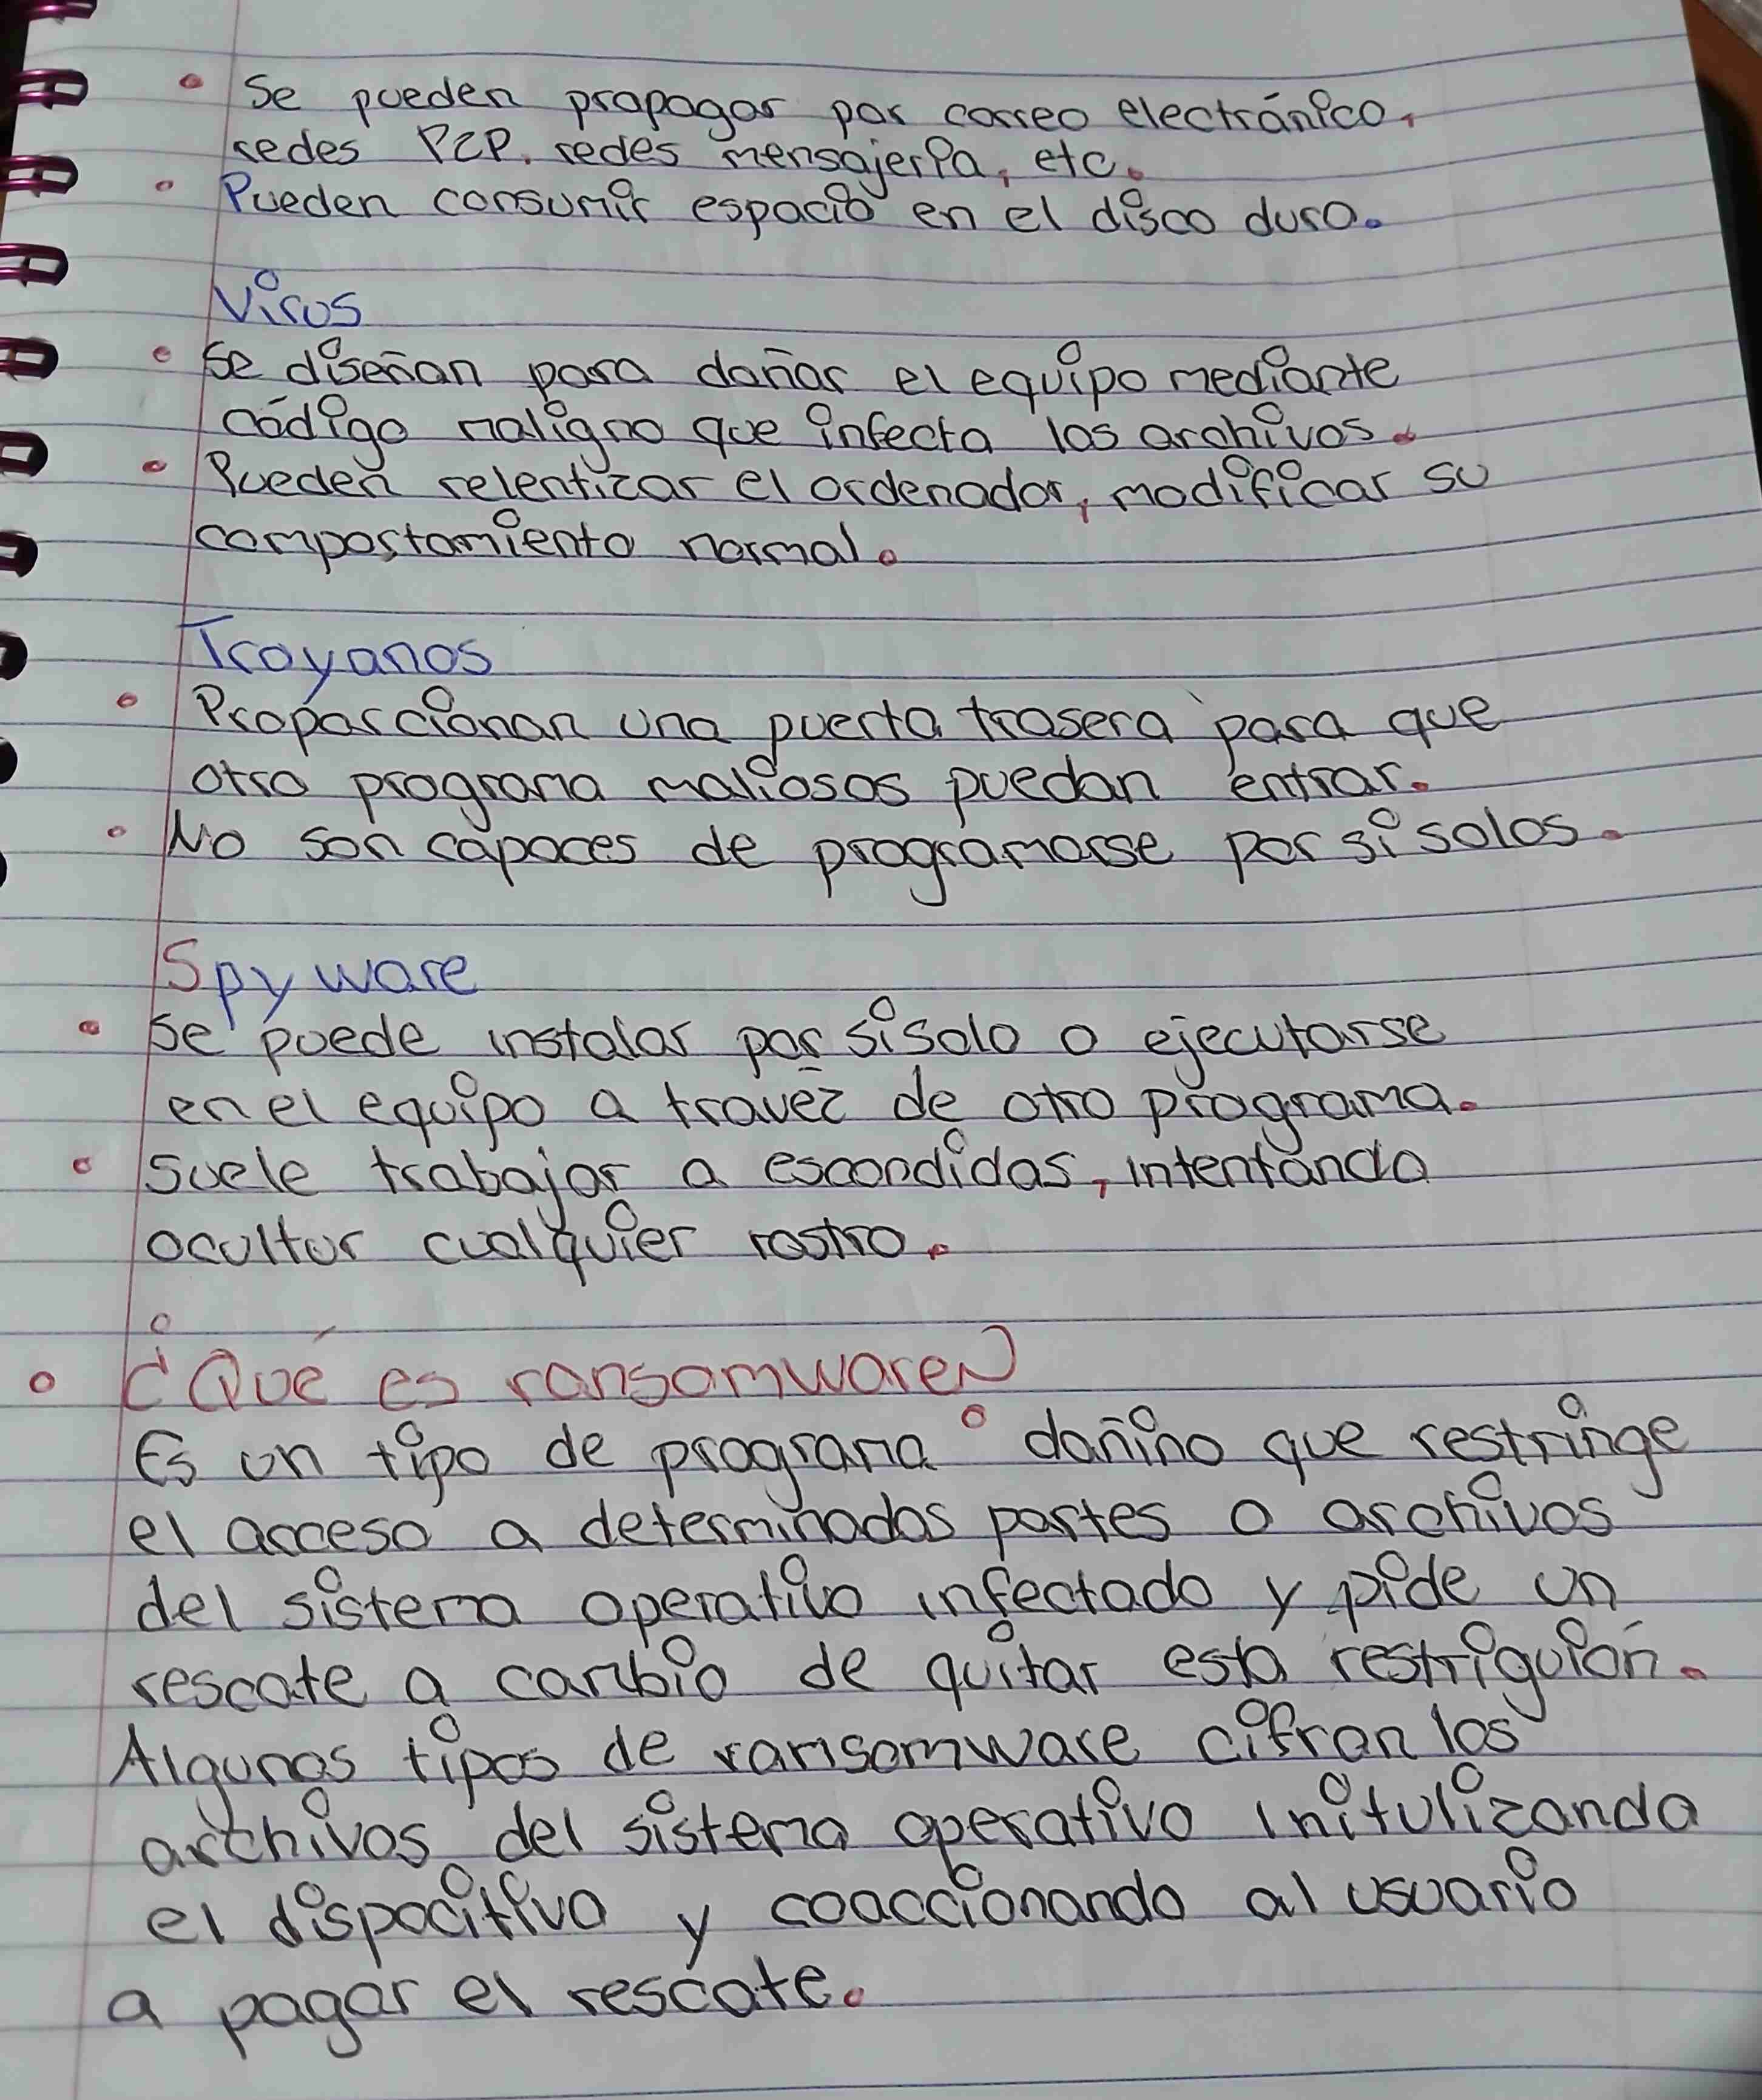 • Se pueden propagar por correo electrónico,
redes P2P, redes mensajería, etc.
• Pueden consumir espacio en el disco duro.
Virus
• Se diseñan para dañar el equipo mediante
código maligno que infecta los archivos.
• Pueden relentizar el ordenador, modificar su
comportamiento normal.
Troyanos
• Proporcionan una puerta trasera para que
otro programa maliosos puedan entrar.
• No son capaces de programarse por si solos.
Spyware
• Se puede instalar por si solo o ejecutarse
en el equipo a travéz de otro programa.
• Suele trabajar a escondidas, intentando
ocultar cualquier rastro.
• ¿Qué es ransomware?
Es un tipo de programa dañino que restringe
el acceso a determinados partes o archivos
del sistema operativo infectado y pide un
rescate a cambio de quitar esta restriguión.
Algunos tipos de ransomware cifran los
archivos del sistema operativo initulizando
el dispocitivo y coaccionando al usuario
a pagar el rescate.